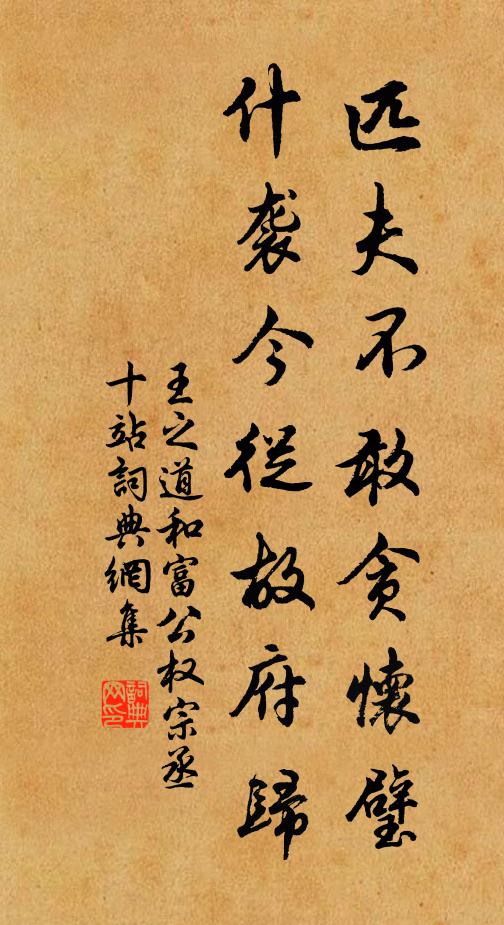 匹夫不敢贪懷璧
什袭今從故府歸
王之道和富公权宗丞
十站詞典網集
詞典
网印